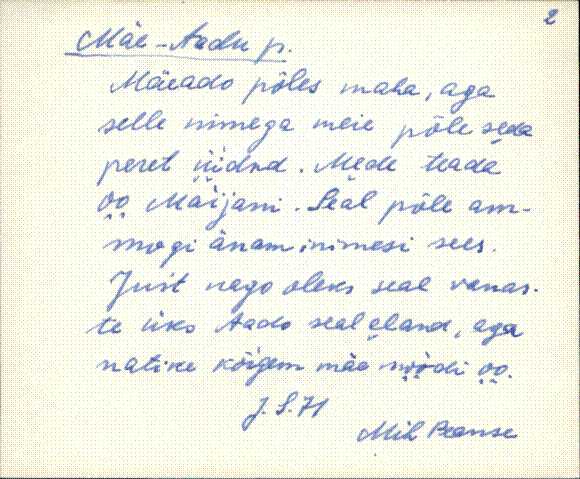 2
Mäe-Aadu p.
Mäeado põles maha, aga
selle nimega meie põle seda
peret üidnd. Mede teada
oo Mäijani. Seal põle am-
mogi änam inimesi sees.
Just nago oleks seal vanas-
te üks Aado seal eland, aga
natike kõigem mäe moodi oo.
J. S. 71
Mih